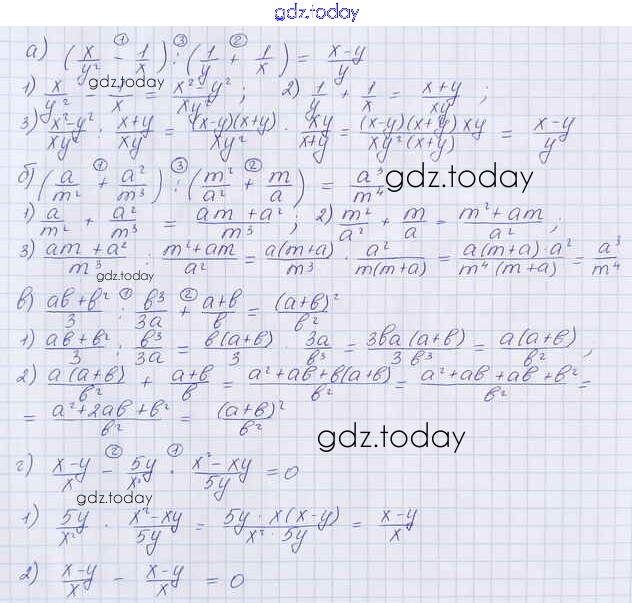 gdz.today
а) (x/y² - 1/x) : (1/y + 1/x) = (x-y)/y
1) x/y² - 1/x = (x²-y²)/xy² ; 2) 1/y + 1/x = (x+y)/xy ;
gdz.today
3) (x²-y²)/xy² : (x+y)/xy = (x-y)(x+y)/xy² · xy/(x+y) = (x-y)(x+y)xy/xy²(x+y) = (x-y)/y
б) (a/m² + a²/m³) : (m²/a² + m/a) = a³/m⁴
gdz.today
1) a/m² + a²/m³ = (am+a²)/m³ ; 2) m²/a² + m/a = (m²+am)/a² ;
3) (am+a²)/m³ : (m²+am)/a² = a(m+a)/m³ · a²/m(m+a) = a(m+a)·a²/m⁴(m+a) = a³/m⁴
gdz.today
в) (ab+b²)/3 : b³/3a + (a+b)/b = (a+b)²/b²
1) (ab+b²)/3 : b³/3a = b(a+b)/3 · 3a/b³ = 3ba(a+b)/3b³ = a(a+b)/b² ;
2) a(a+b)/b² + (a+b)/b = (a²+ab+b(a+b))/b² = (a²+ab+ab+b²)/b² =
= (a²+2ab+b²)/b² = (a+b)²/b²
gdz.today
г) (x-y)/x - 5y/x² · (x²-xy)/5y = 0
gdz.today
1) 5y/x² · (x²-xy)/5y = 5y·x(x-y)/x²·5y = (x-y)/x
2) (x-y)/x - (x-y)/x = 0